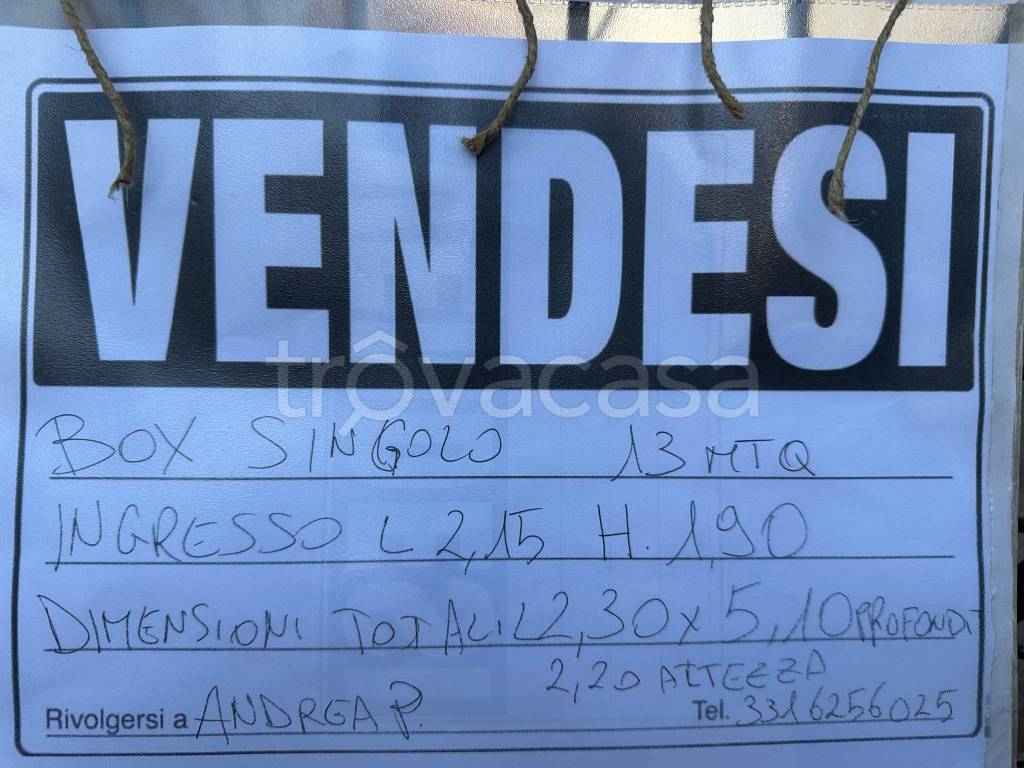 VENDESI
trovacasa
BOX SINGOLO 13 MTQ
INGRESSO L 2,15 H. 1,90
DIMENSIONI TOTALI L2,30 x 5,10 PROFONDIT
2,20 ALTEZZA
Rivolgersi a ANDREA P. Tel. 3316256025